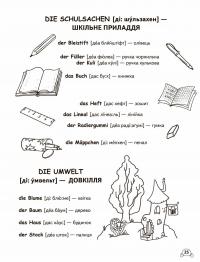 DIE SCHULSACHEN [ді: шу́льзахен] —
ШКІЛЬНЕ ПРИЛАДДЯ
der Bleistift [деа бляйштіфт] — олівець
der Füller [деа фюлеа] — ручка чорнильна
der Kuli [деа ку́лі] — ручка кулькова
das Buch [дас бух] — книжка
das Heft [дас хефт] — зошит
das Lineal [дас лінеаль] — лінійка
der Radiergummi [деа радіагумі] — гумка
die Mäppchen [ді мепхен] — пенал
DIE UMWELT
[ді: у́мвельт] — ДОВКІЛЛЯ
die Blume [ді блю́ме] — квітка
der Baum [деа баум] — дерево
das Haus [дас хаус] — будинок
der Stock [деа шток] — палиця
25